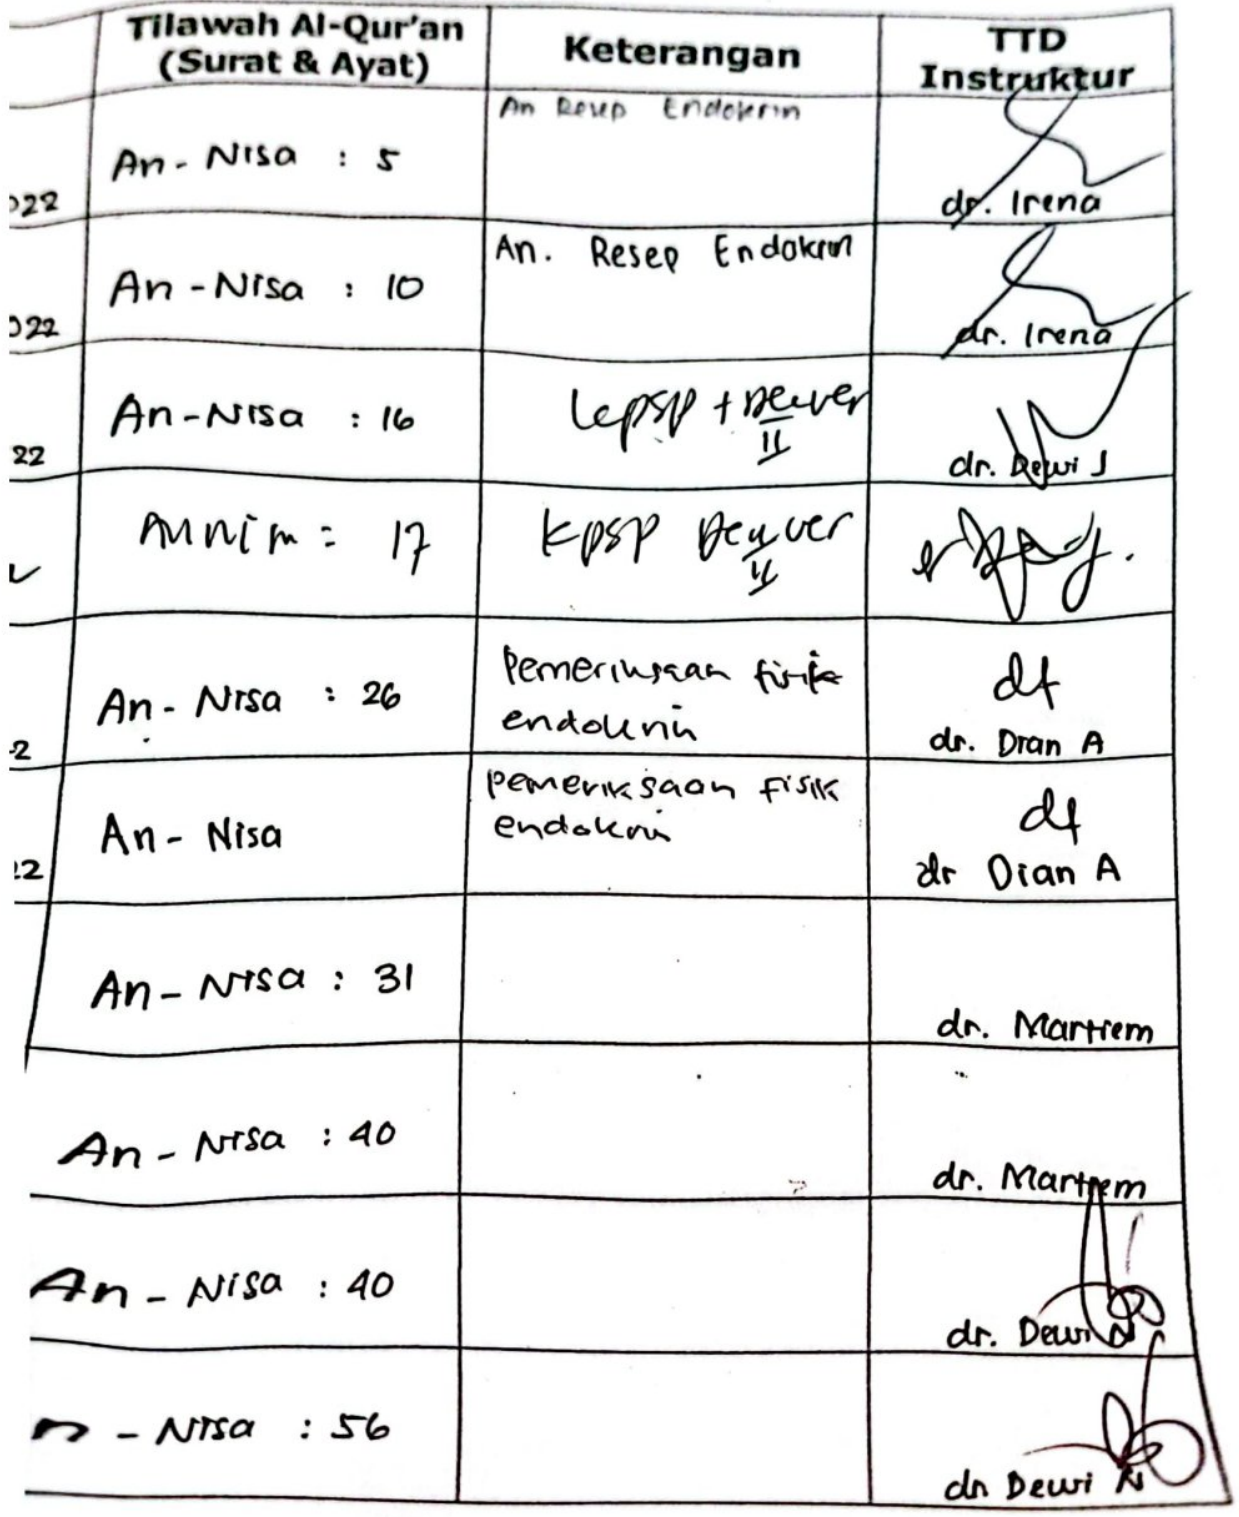 Tilawah Al-Qur'an
(Surat & Ayat)
Keterangan
TTD
Instruktur
022
An - Nisa : 5
An Resep Endokrin
dr. Irena
022
An - Nisa : 10
An. Resep Endokrin
dr. Irena
22
An - Nisa : 16
KPSP + Denver
II
dr. Dewi J
17
KPSP Denver
II
2
An - Nisa : 26
Pemeriksaan fisik
endokrin
dr. Dian A
22
An - Nisa
pemeriksaan fisik
endokrin
dr Dian A
An - Nisa : 31
dr. Martiem
An - Nisa : 40
dr. Martiem
An - Nisa : 40
dr. Dewi N
n - Nisa : 56
dr Dewi N